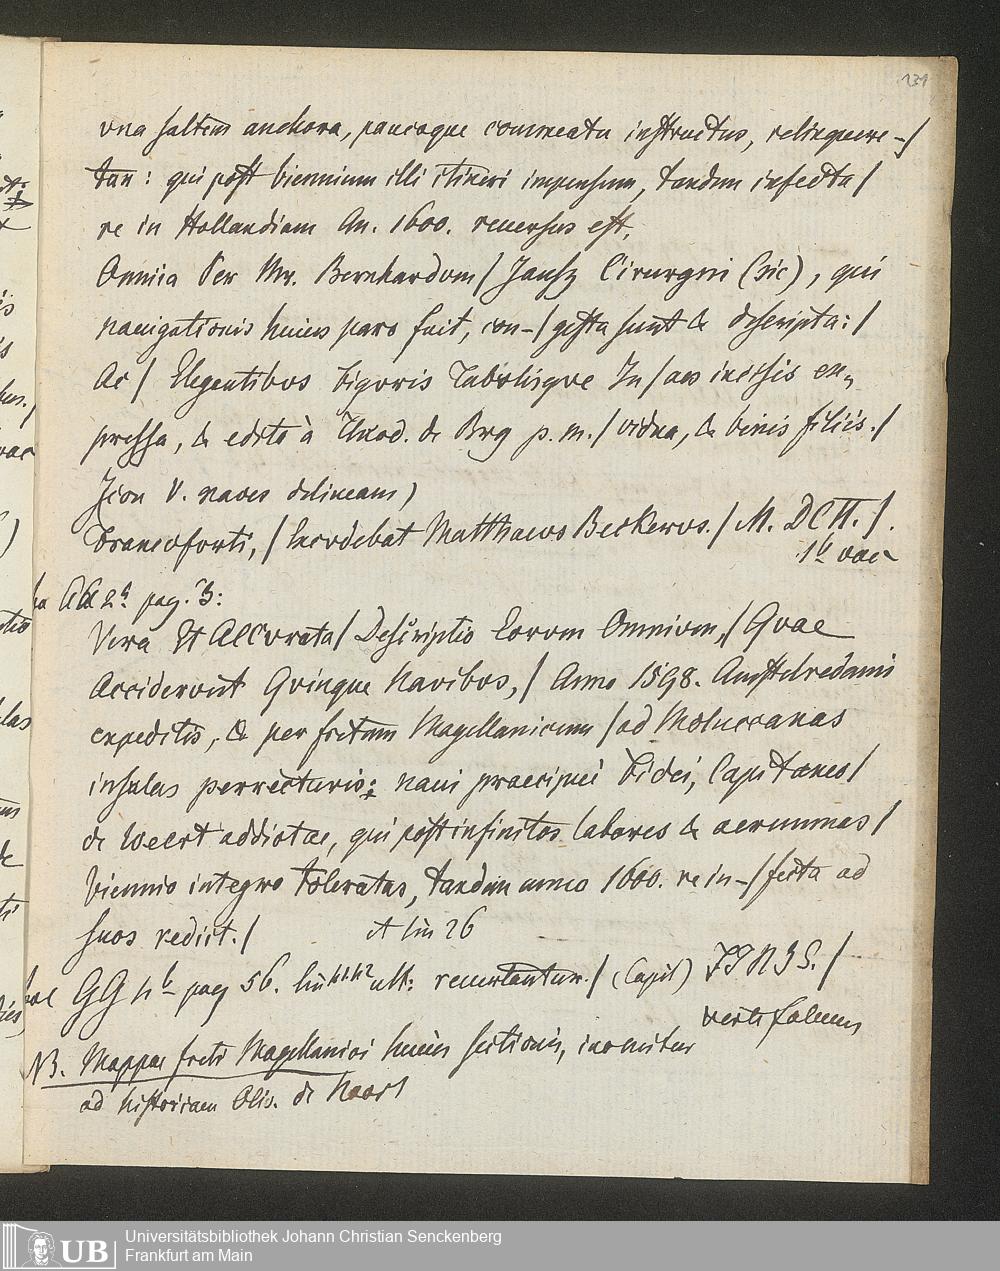 131
vna saltem anchora, paucoque commeatu instructus, relinquere-/
tur: qui post biennium illi itineri impensum, tandem infecta/
re in Hollandiam An. 1600. reuersus est,
Omnia Per Mr. Bernhardum/ Jansz Cirurgm (sic), qui
nauigationis huius pars fuit, con-/gesta sunt & descripta:/
Ac/ Elegentibus Figuris Tabulisque In/aes incisis ex,,
pressa, & edita à Theod. de Bry p. m./ vidua, & binis filiis./
Icon V. naues delineans)
Francoforti,/ Excudebat Matthaeus Beckerus./ M. DCII./.
1b vac
AA 2a pag. 3:
Vera Et Accurata/ Descriptio Eorum Omnium,/ Quae
Acciderunt Quinque Navibus,/ Anno 1598. Amstelredami
expeditis, & per fretum Magellanicum/ad Moluccanas
insulas perrecturis: naui praecipuè Fidei, Capitaneo/
de Weert addictae, qui post infinitos labores & aerumnas/
biennio integro toleratas, tandem anno 1600. re in-/fecta ad
suos rediit./ A lin 26
GG 4b pag 56. lin ult: reuertantur./ (Capit) FINIS./
verte folium
NB. Mappae freti Magellanici huius sectionis, incenitur
ad historiam Oliv. de Noort
Universitätsbibliothek Johann Christian Senckenberg
UB Frankfurt am Main